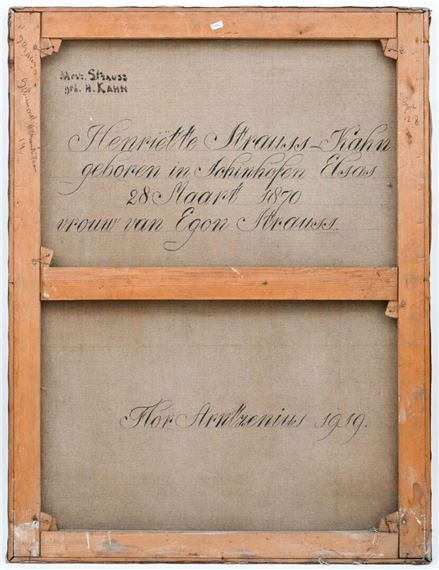 Mevr. Strauss
geb. H. Kahn
Henriëtte Strauss-Kahn
geboren in Schinhofen Elsas
28 Maart 1870
vrouw van Egon Strauss.
Flor. Arntzenius 1919.